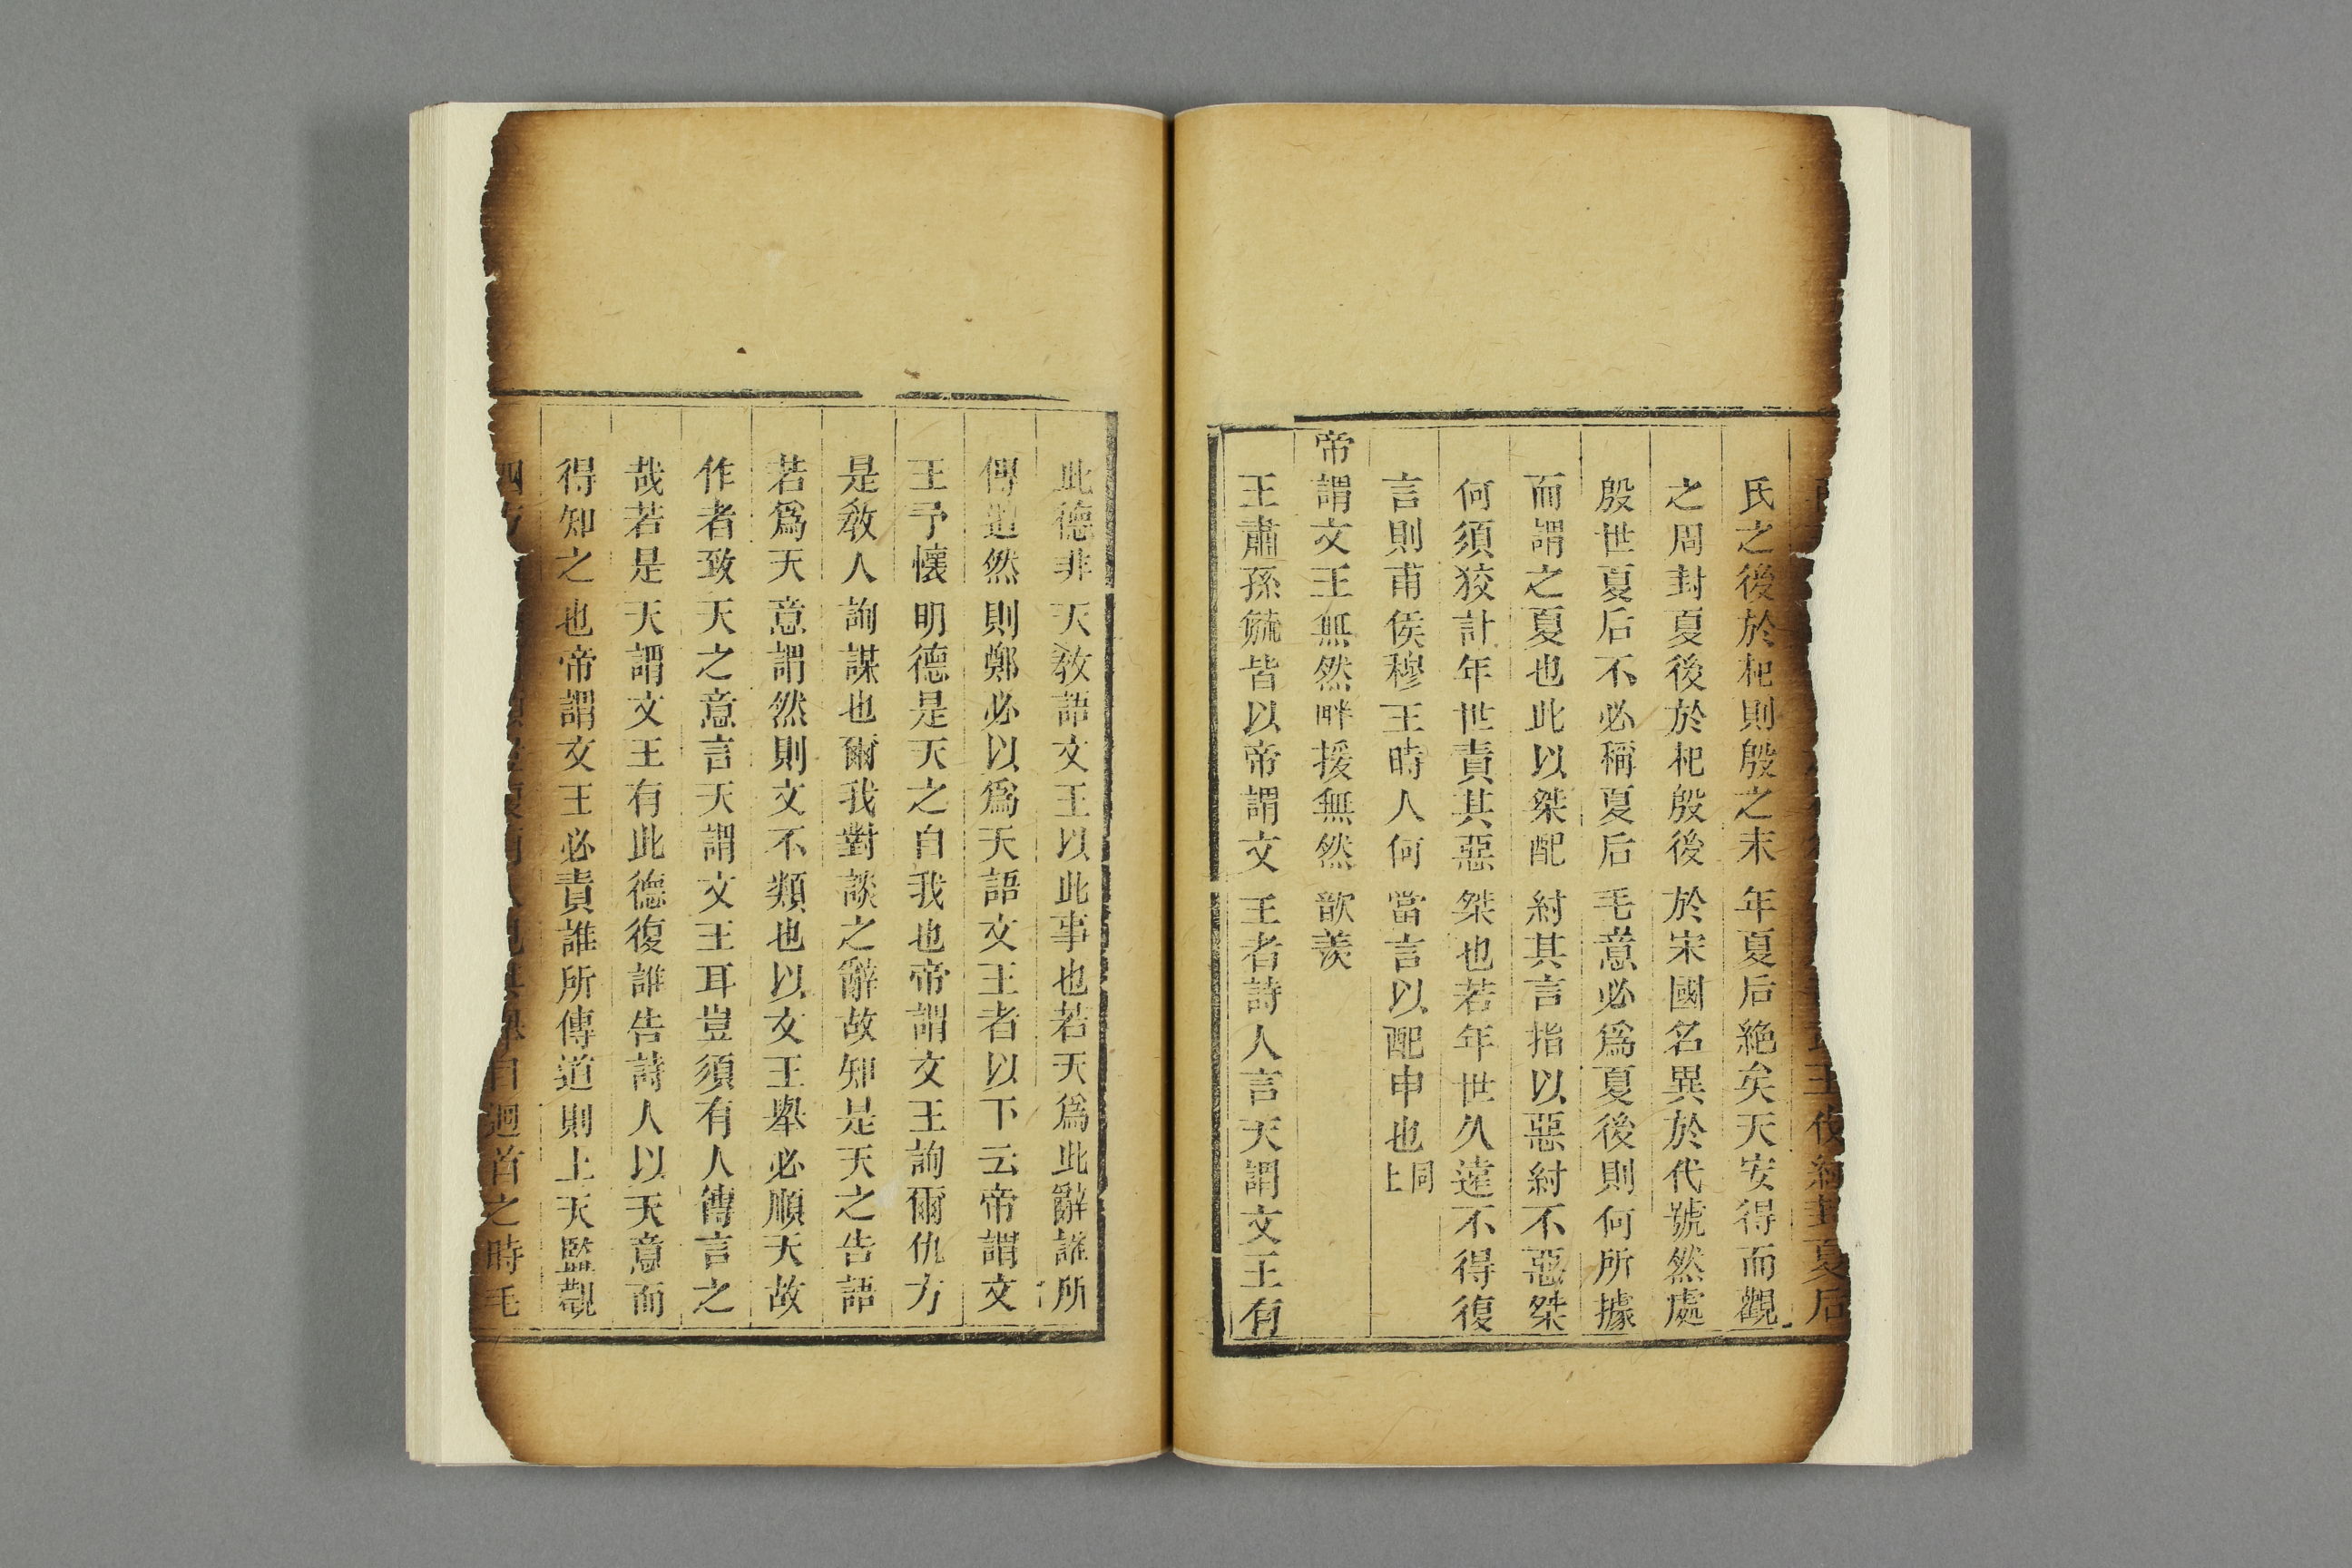 王伐紂封夏后
氏之後於杞則殷之末年夏后絶矣天安得而觀
之周封夏後於杞殷後於宋國名異於代號然處
殷世夏后不必稱夏后毛意必爲夏後則何所據
而謂之夏也此以桀配紂其言指以惡紂不惡桀
何須狡計年世責其惡桀也若年世久遠不得復
言則甫侯穆王時人何當言以配申也同上
帝謂文王無然畔援無然歆羨
王肅孫毓皆以帝謂文王者詩人言天謂文王有
此德非天敎語文王以此事也若天爲此辭誰所
傳道然則鄭必以爲天語文王者以下云帝謂文
王予懷明德是天之自我也帝謂文王詢爾仇方
是敎人詢謀也爾我對談之辭故知是天之告語
若爲天意謂然則文不類也以文王舉必順天故
作者致天之意言天謂文王耳豈須有人傳言之
哉若是天謂文王有此德復誰告詩人以天意而
得知之也帝謂文王必責誰所傳道則上天監觀
四方自迴首之時毛